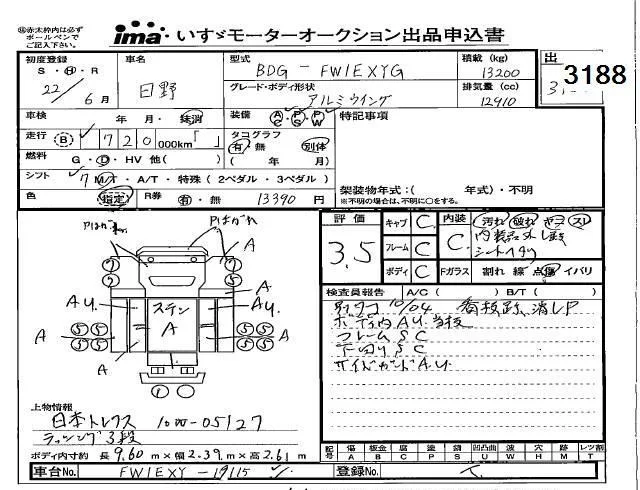 ㊟赤太枠内は必ず
ボールペンで
ご記入下さい。
ima いすゞモーターオークション出品申込書
初度登録
S・H・R
22年 6月
車名
日野
型式
BDG-FW1EXYG
グレード・ボディ形状
アルミウイング
積載 (kg)
13200
排気量 (cc)
12910
出
3188
車検 年 月・抹消
装備 AC PS PW
特記事項
走行 B 720 000km「 」
タコグラフ
有・無 別体
( 年 月)
燃料 G・D・HV 他( )
シフト 7 M/T・A/T・特殊 (2ペダル・3ペダル)
色 指定 R券 有・無 13390 円
架装物年式:( 年式)・不明
※不明の場合は、不明に○をする。
評価
3.5
キャブ C
フレーム C
ボディ C
内装 C
汚れ 破れ キコ スレ
内装品外し跡
シートヘタリ
Fガラス 割れ 線 点傷 イバリ
Pはがれ
Pはがれ
A
A
A
AU
AU
A
A
ステン
A
検査員報告 A/C( ) B/T( )
別タコ 10/04 看板跡、消しP
ボディ内AU.当板
フレームSC
下回りSC
サイドガードA.U.
上物情報
日本トレクス 10W-05127
ラッシング3段
ボディ内寸約 長9.60m×幅2.39m×高2.61m
記号 傷 板金 腐 塗 錆 凹凸曲 波 穴 跡 レツ割
A B C P S U W H M T
車台No. FW1EXY-19115
登録No.